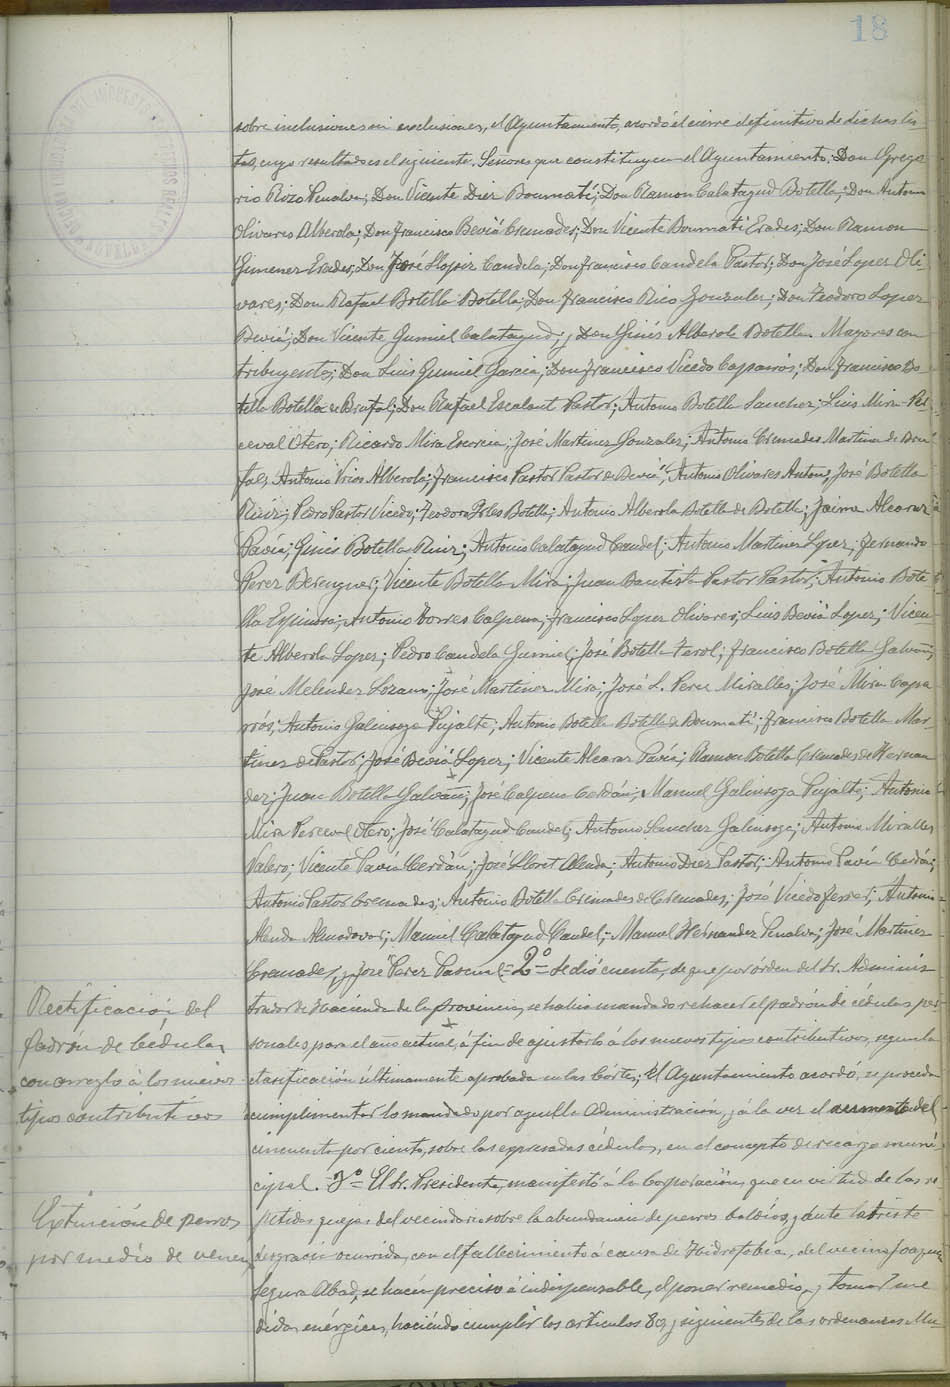 18
sobre inclusiones ni exclusiones, el Ayuntamiento, acordó el cierre definitivo de dichas lis-
tas, cuyo resultado es el siguiente. Señores que constituyen el Ayuntamiento; Don Grego-
rio Rizo Penalva; Don Vicente Diez Boumatí; Don Ramon Calatayud Botella; Don Antonio
Olivares Alberola; Don Francisco Beviá Cremades; Don Vicente Boumatí Erades; Don Ramon
Gimenez Erades; Don José Llopiz Candela; Don Francisco Candela Pastor; Don José Lopez Oli-
vares; Don Rafael Botella Botella; Don Francisco Rico Gonzalez; Don Teodoro Lopez
Beviá; Don Vicente Gumiel Calatayud; y Don Ginés Alberola Botella. Mayores con-
tribuyentes; Don Luis Gumiel Garcia; Don Francisco Vicedo Caparrós; Don Francisco Bo-
tella Botella de Brufal; Don Rafael Escalant Pastor; Antonio Botella Sanchez; Luis Mira Per-
ceval Otero; Ricardo Mira; José Martinez Gonzalez; Antonio Cremades Martinez de Bru-
fal; Antonio Alberola; Francisco Pastor Pastor de Beviá; Antonio Olivares Anton; José Botella
Ruiz; Pedro Pastor Vicedo; Teodoro Botella; Antonio Alberola Botella de Botella; Jaime Alcaraz
Pavía; Ginés Botella Ruiz; Antonio Calatayud Caudel; Antonio Martinez Lopez; Fernando
Perez Berenguer; Vicente Botella Mira; Juan Bautista Pastor Pastor; Antonio Bote-
lla Espinosa; Antonio Torres Calpena; Francisco Lopez Olivares; Luis Beviá Lopez; Vicen-
te Alberola Lopez; Pedro Candela Gumiel; José Botella; Francisco Botella Galvañ;
José Melendez Lozano; José Martinez Mira; José L. Perez Miralles; José Mira Capa-
rrós; Antonio Galinsoga Pujalte; Antonio Botella Botella de Boumatí; Francisco Botella Mar-
tinez de Pastor; José Beviá Lopez; Vicente Alcaraz Pavía; Ramon Botella Cremades de Hernan-
dez; Juan Botella Galvañ; José Calpena Cerdán; Manuel Galinsoga Pujalte; Antonio
Mira Perceval Otero; José Calatayud Caudel; Antonio Sanchez Galinsoga; Antonio Miralles
Valero; Vicente Pavía Cerdán; José Lloret Alenda; Antonio Diez Pastor; Antonio Pavía Cerdán;
Antonio Pastor Cremades; Antonio Botella Cremades de Cremades; José Vicedo Ferrer; Antonio
Alenda Almodovar; Manuel Calatayud Caudel; Manuel Hernandez Penalva; José Martinez
Cremades, y José Perez Pascual = 2º = Se dió cuenta, de que por órden del Sr. Adminis-
trador de Hacienda de la provincia, se habia mandado rehacer el padrón de cédulas per-
sonales para el año actual, á fin de ajustarlo á los nuevos tipos contributivos, segun la
clasificación últimamente aprobada en las Córtes; el Ayuntamiento acordó, se proceda
á cumplimentar lo mandado por aquella Administración, y á la vez el aumento del
cincuenta por ciento, sobre las expresadas cédulas, en el concepto de recargo muni-
cipal. 3º = El Sr. Presidente, manifestó á la Corporación, que en virtud de las re-
petidas quejas del vecindario sobre la abundancia de perros baldíos, y ante la triste
desgracia ocurrida, con el fallecimiento á causa de Hidrofobia, del vecino Joaquin
Segura Abad, se hacía preciso é indispensable, el poner remedio, y tomar me-
didas enérgicas, haciendo cumplir los artículos 80 y siguientes de las ordenanzas Mu-
Rectificación del
Padrón de Cédulas
con arreglo á los nuevos
tipos contributivos
Extinción de perros
por medio de veneno